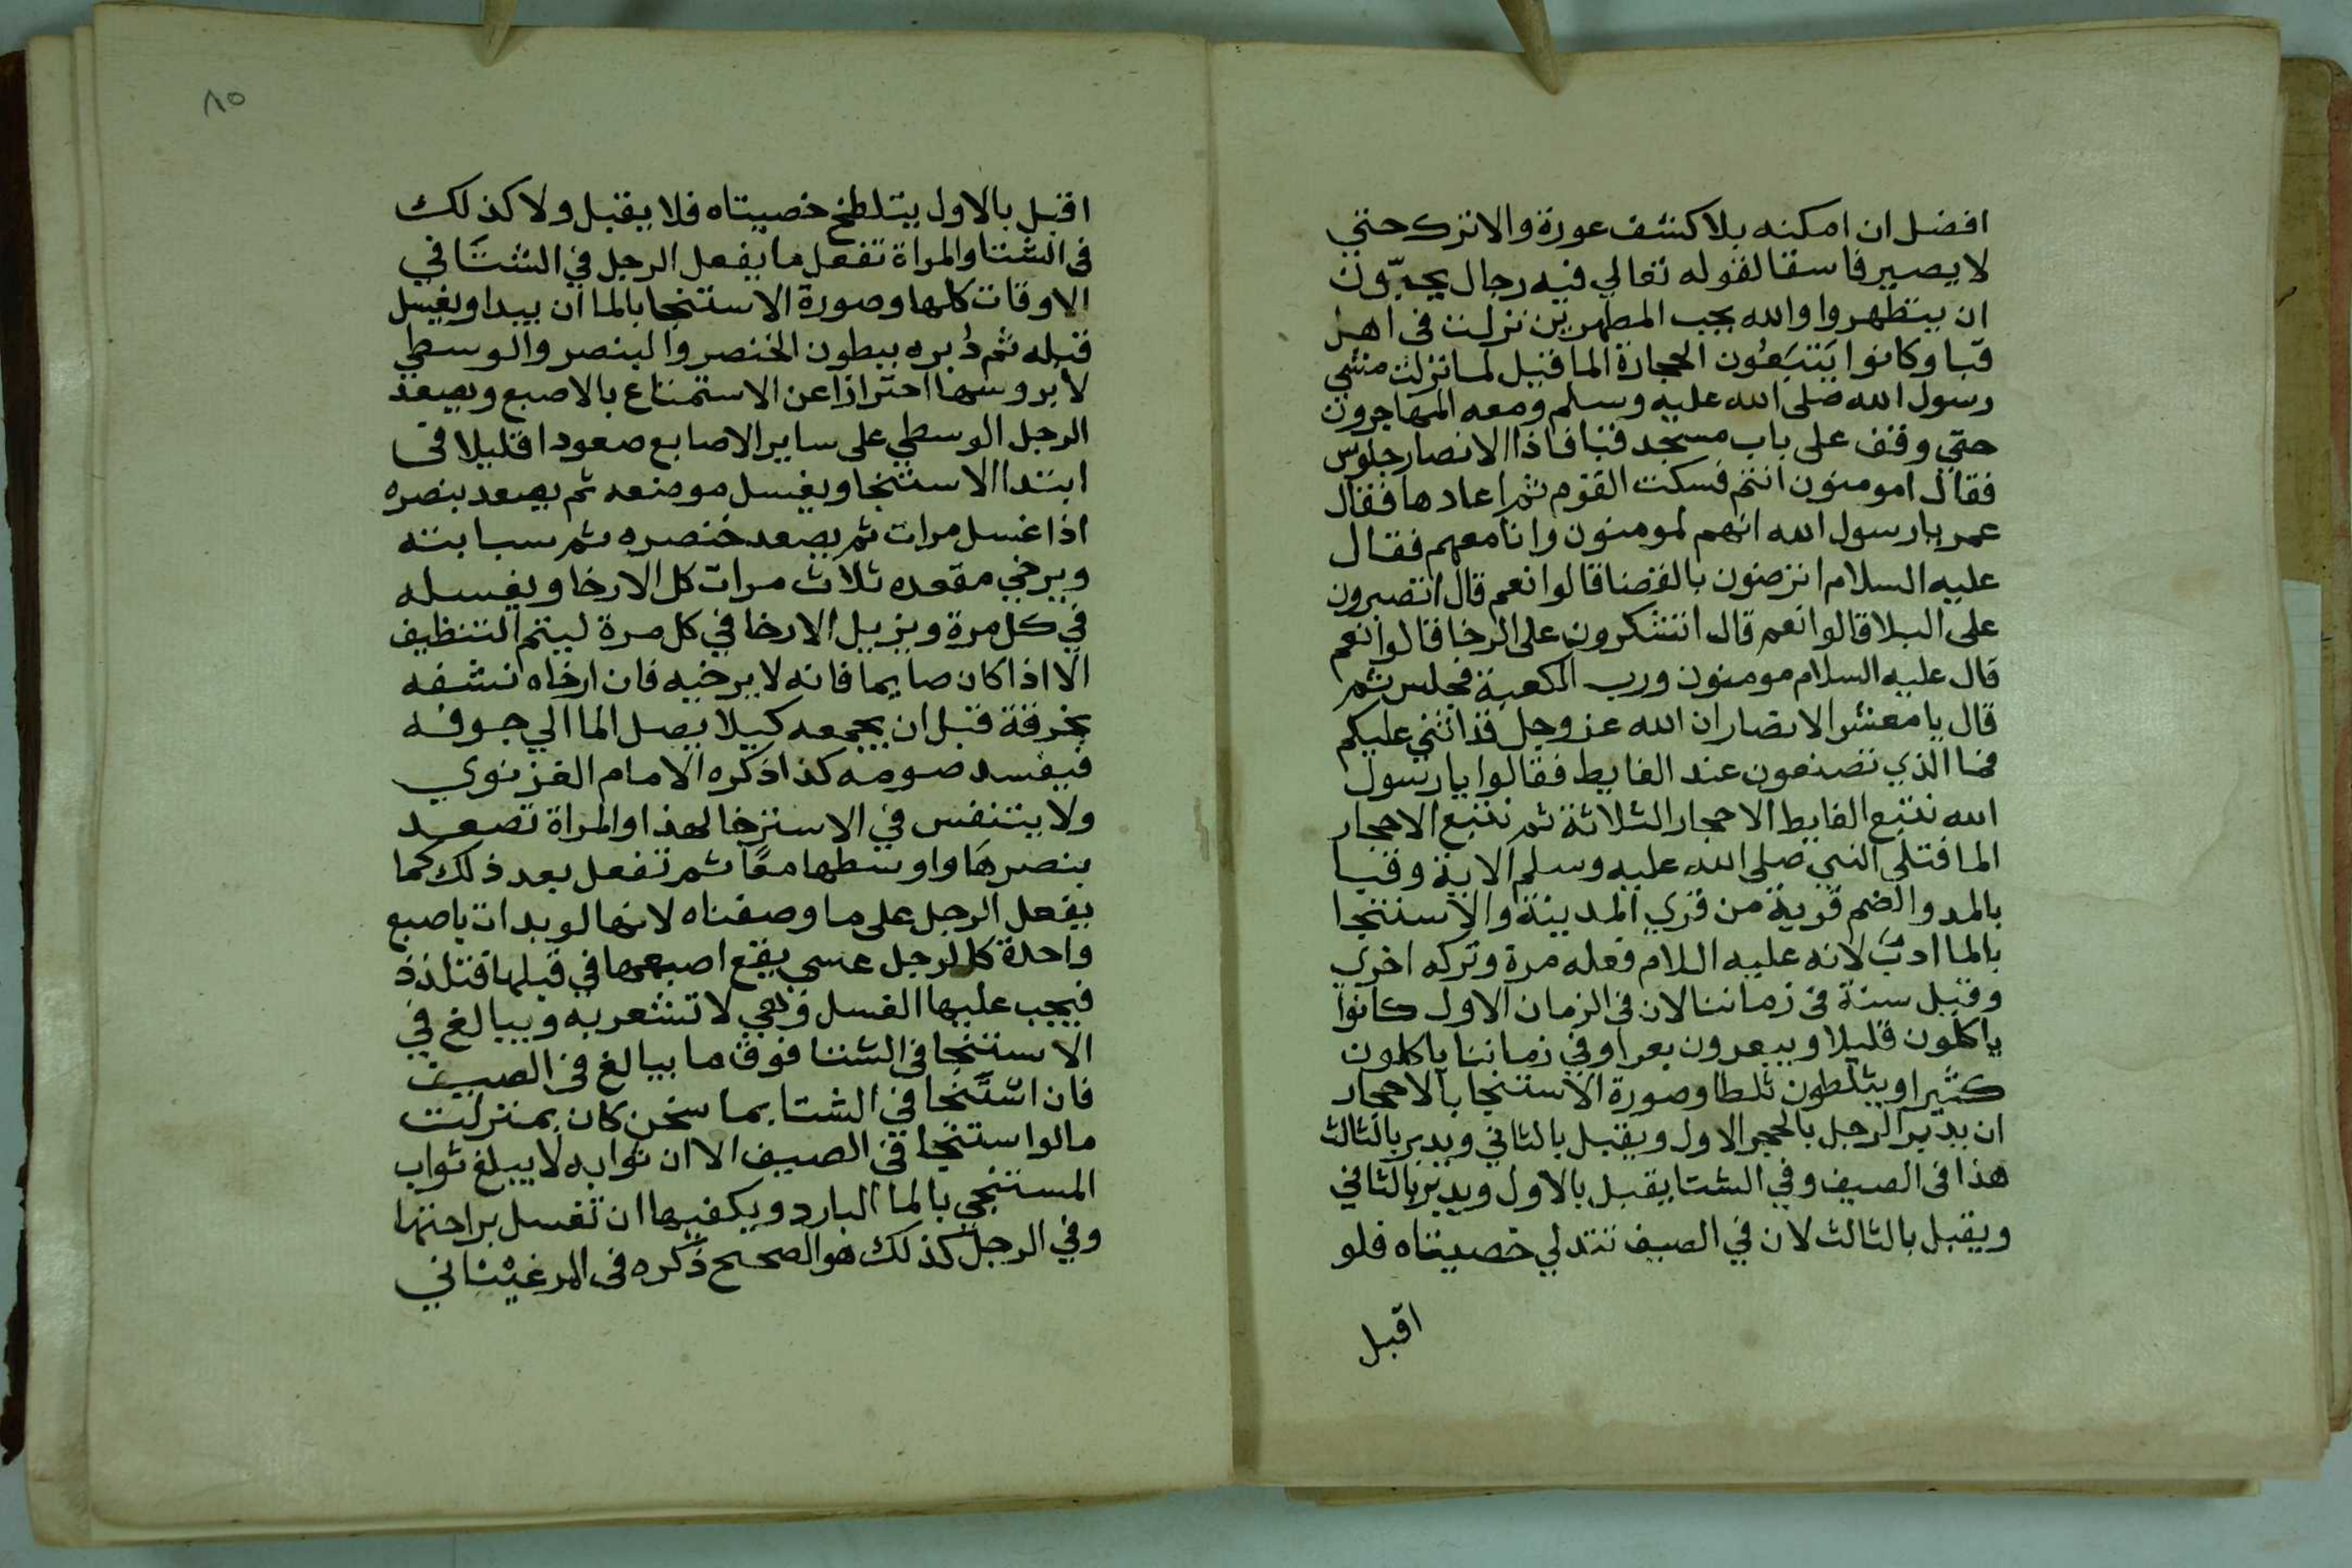 افضل ان امكنه بلا كشف عورة والا ترك حتي
لا يصير فاسقا لقوله تعالي فيه رجال يحبّون
ان يتطهروا والله يحب المطهرين نزلت في اهل
قبا وكانوا يَتبَعُون الحجارة الما قيل لما نزلت مشي
رسول الله صلى الله عليه وسلم ومعه المهاجرون
حتي وقف على باب مسجد قبا فاذا الانصار جلوس
فقال امومنون انتم فسكت القوم ثم اعادها فقال
عمر يا رسول الله انهم لمومنون وانا معهم فقال
عليه السلام اترضون بالقضا قالوا نعم قال اتصبرون
على البلا قالوا نعم قال اتشكرون على الرخا قالوا نعم
قال عليه السلام مومنون ورب الكعبة فجلس ثم
قال يا معشر الانصار ان الله عز وجل قد اثني عليكم
فما الذي تصنعون عند الغايط فقالوا يا رسول
الله نتبع الغايط الاحجار الثلاثة ثم نتبع الاحجار
الما فتلى النبي صلى الله عليه وسلم الاية وقبا
بالمد والضم قرية من قري المدينة والاستنجا
بالما ادبٌ لانه عليه اللام فعله مرة وتركه اخري
وقيل سنة في زماننا لان في الزمان الاول كانوا
ياكلون قليلا ويبعرون بعرا وفي زماننا ياكلون
كثيرا ويثلطون ثلطا وصورة الاستنجا بالاحجار
ان يدبر الرجل بالحجر الاول ويقبل بالثاني ويدبر بالثالث
هذا في الصيف وفي الشتا يقبل بالاول ويدبر بالثاني
ويقبل بالثالث لان في الصيف تتدلي خصيتاه فلو
اقبل
٨٥
اقبل بالاول يتلطخ خصيتاه فلا يقبل ولا كذلك
في الشتا والمراة تفعل ما يفعل الرجل في الشتَا في
الاوقات كلها وصورة الاستنجا بالما ان يبدا ويغسل
قبله ثم دُبره ببطون الخنصر والبنصر والوسطي
لا بروسها احترازا عن الاستمتاع بالاصبع ويصعد
الرجل الوسطي على ساير الاصابع صعودا قليلا في
ابتدا الاستنجا ويغسل موضعه ثم يصعد بنصره
اذا غسل مرات ثم يصعد خنصره ثم سبابته
ويرخي مقعده ثلاث مرات كل الارخا ويغسله
في كل مرة ويزيل الارخا في كل مرة ليتم التنظيف
الا اذا كان صايما فانه لا يرخيه فان ارخاه نشفه
بخرقة قبل ان يجمعه كيلا يصل الما الي جوفه
فيفسد صومه كذا ذكره الامام الغزنوي
ولا يتنفس في الاسترخا لهذا والمراة تصعد
بنصرهَا واوسطها معًا ثم تفعل بعد ذلك كما
يفعل الرجل على ما وصفناه لانها لو بدات باصبع
واحدة كالرجل عسي يقع اصبعها في قبلها فتلذذ
فيجب عليها الغسل وهي لا تشعر به ويبالغ في
الاستنجا في الشتا فوق ما يبالغ في الصيف
فان استَنجا في الشتا بما سخن كان بمنزلت
ما لو استنجا في الصيف الا ان ثوابه لا يبلغ ثواب
المستنجي بالما البارد ويكفيها ان تغسل براحتها
وفي الرجل كذلك هو الصحيح ذكره في المرغيناني